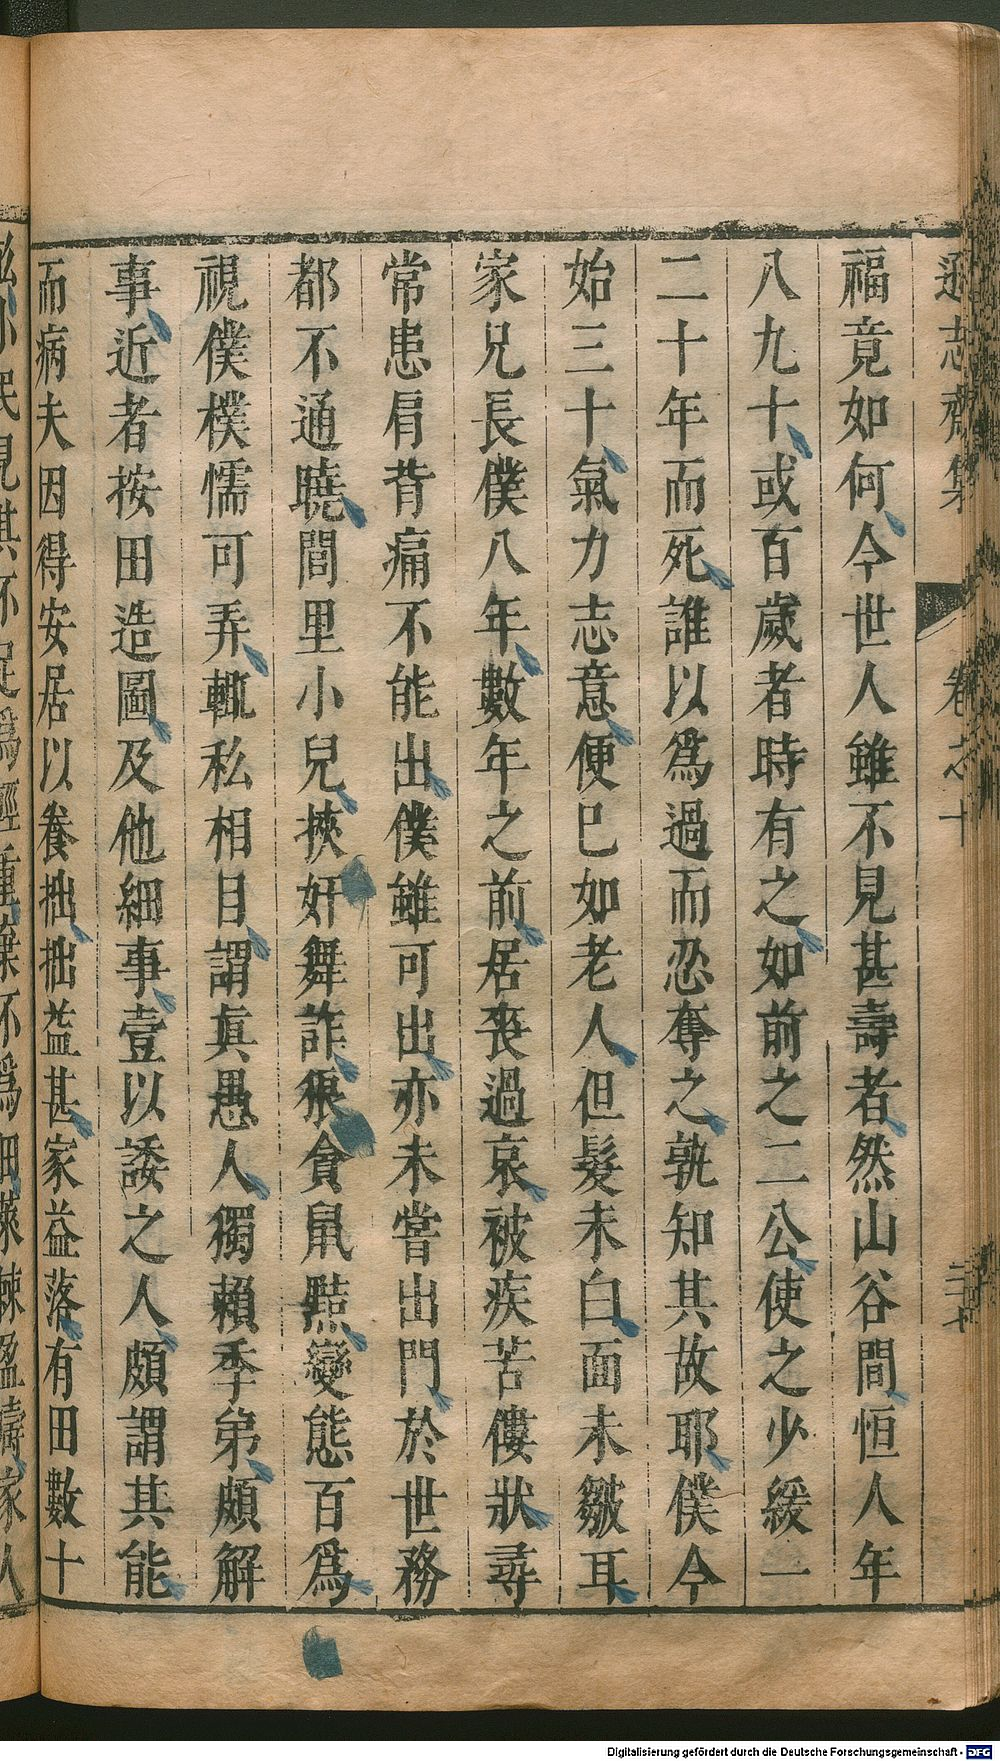 遜志齋集 卷之十
福竟如何今世人雖不見甚壽者然山谷間恒人年
八九十或百歲者時有之如前之二公使之少緩一
二十年而死誰以爲過而忍奪之孰知其故耶僕今
始三十氣力志意便已如老人但髮未白面未皺耳
家兄長僕八年數年之前居喪過哀被疾苦僂狀尋
常患肩背痛不能出僕雖可出亦未嘗出門於世務
都不通曉閭里小兒挾奸舞詐狼貪鼠黠變態百爲
視僕樸懦可弄輒私相目謂眞愚人獨賴季弟頗解
事近者按田造圖及他細事壹以諉之人頗謂其能
而病夫因得安居以養拙拙益甚家益落有田數十
Digitalisierung gefördert durch die Deutsche Forschungsgemeinschaft - DFG